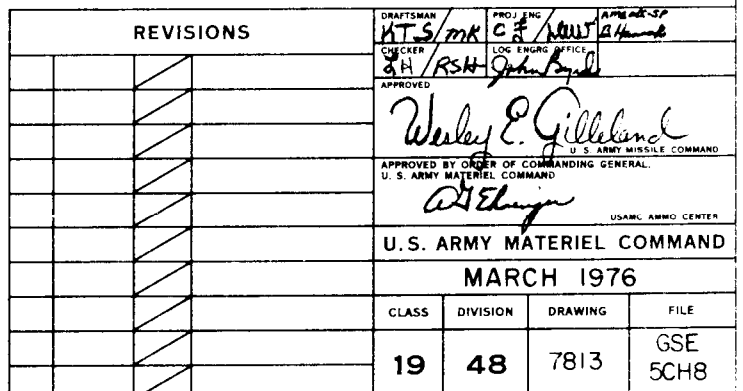 REVISIONS
DRAFTSMAN
KTS/MK
PROJ ENG
CF/
CHECKER
LH/RSH
LOG ENGRG OFFICE
John Byrd
APPROVED
Wesley E. Gilleland
U. S. ARMY MISSILE COMMAND
APPROVED BY ORDER OF COMMANDING GENERAL.
U. S. ARMY MATERIEL COMMAND
USAMC AMMO CENTER
U.S. ARMY MATERIEL COMMAND
MARCH 1976
CLASS DIVISION DRAWING FILE
19 48 7813 GSE
5CH8